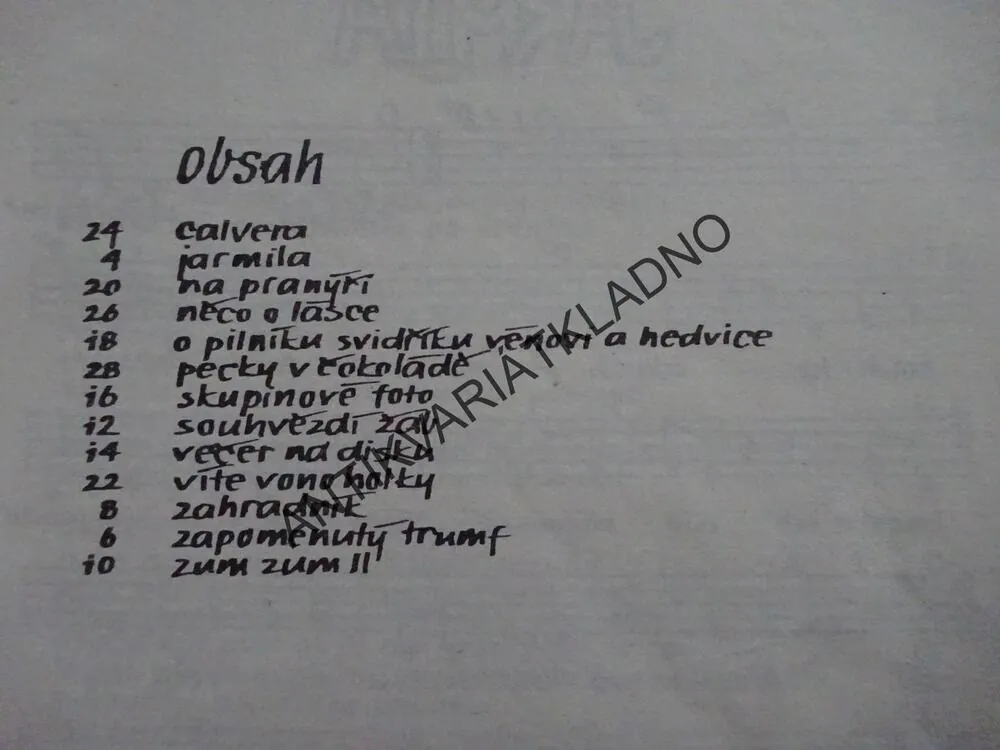 obsah
24 calvera
4 jarmila
20 na pranýří
26 něco o lásce
18 o pilníku svidříku věnovi a hedvice
28 pecky v čokoládě
16 skupinové foto
12 souhvězdí žal
14 večer na disku
22 víte vono holky
8 zahradník
6 zapomenutý trumf
10 zum zum II
ANTIKVARIÁTKLADNO